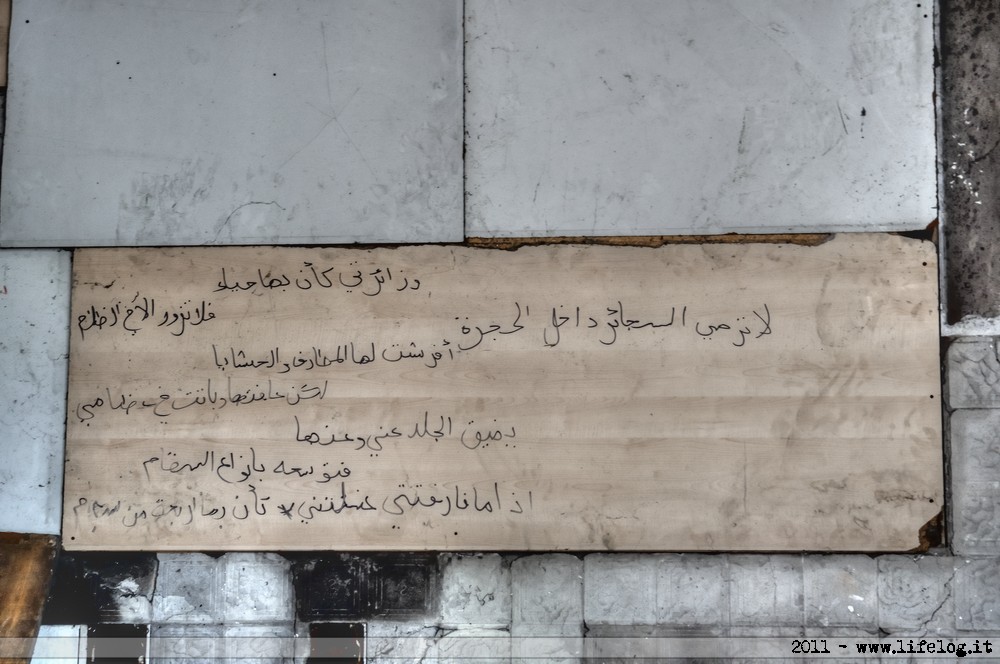 وزائرتي كأن بها حياء
فلا تزور الأفي الظلام
لا ترمي السجائر داخل الحجرة
أفرشت لها المطارف والحشايا
وباتت في عضامي
يضيق الجلد عني وعنها
فتوسعه بأنواع السقام
اذا ما فارقتني غسلتني كأن من
2011 - www.lifelog.it